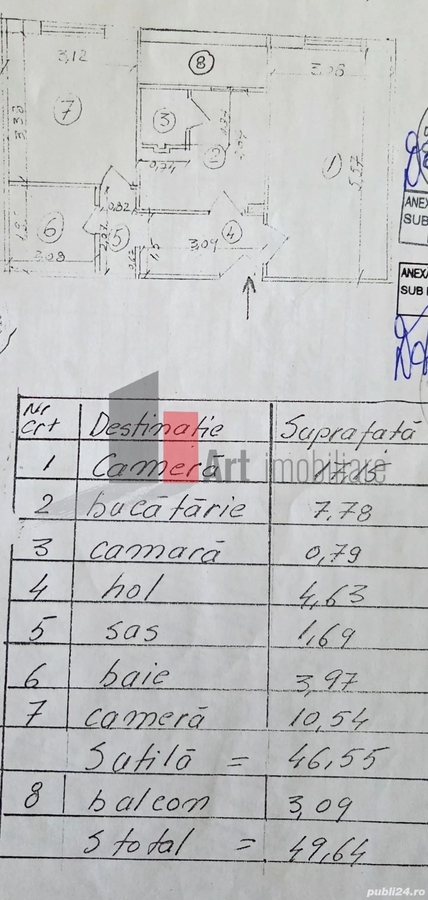 3,12
8
3,08
7
3
3,38
2
0,74
1
5,57
0,82
6
5
4
1,5
3,09
2,08
ANEXA
SUB
ANEXA
SUB
Nr Crt Destinație Suprafață
1 Cameră
2 bucătărie 7,78
3 camară 0,79
4 hol 4,63
5 sas 1,69
6 baie 3,97
7 cameră 10,54
Sutilă = 46,55
8 balcon 3,09
S total = 49,64
Art imobiliare
publi24.ro